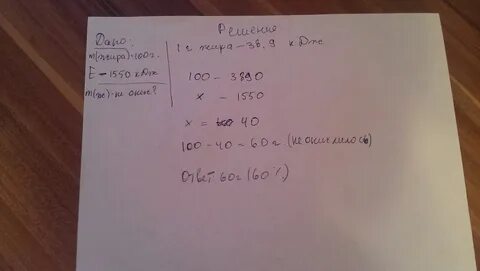 Решение
Дано:
m(жира)=100г.
E - 1550 кДж
m(ж)-не окис?
1 г жира - 38,9 кДж
100 - 3890
x - 1550
x = 40
100 - 40 = 60 г. (не окислилось)
Ответ 60г (60%)